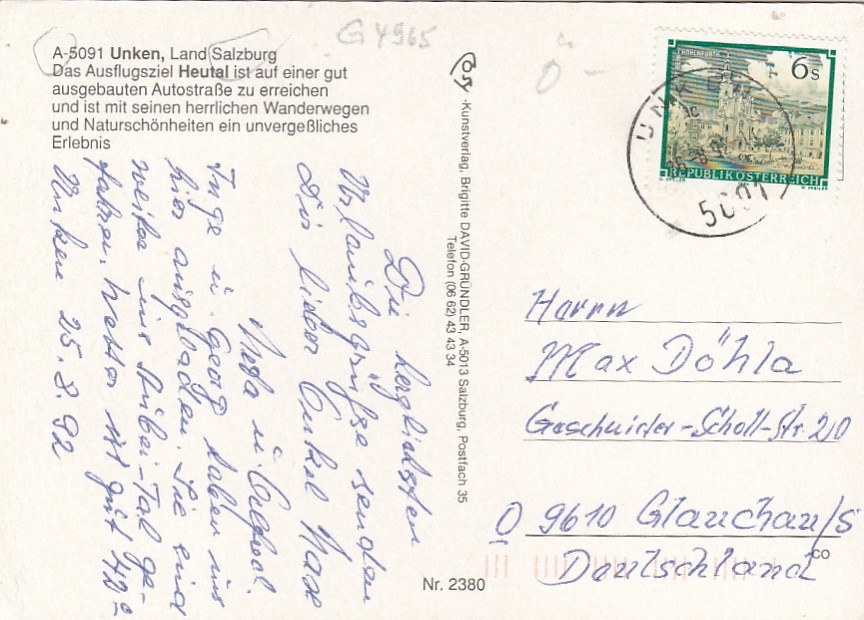 G 4965
A-5091 Unken, Land Salzburg
Das Ausflugsziel Heutal ist auf einer gut
ausgebauten Autostraße zu erreichen
und ist mit seinen herrlichen Wanderwegen
und Naturschönheiten ein unvergeßliches
Erlebnis
Die herzlichsten
Urlaubsgrüße senden
Dir lieber Onkel Max
u.
Inge u. Georg haben uns
hier ausgeladen. Sie sind
weiter ins Stubei-Tal ge-
fahren. Wetter ist gut 40°
Unken 25.8.92
-Kunstverlag, Brigitte DAVID-GRÜNDLER, A-5013 Salzburg, Postfach 35
Telefon (06 62) 43 43 34
Nr. 2380
HOHENFURTH
6 S
REPUBLIK ÖSTERREICH
5091
Herrn
Max Döhla
Geschwister-Scholl-Str. 20
O 9610 Glauchau/S
Deutschland
CO